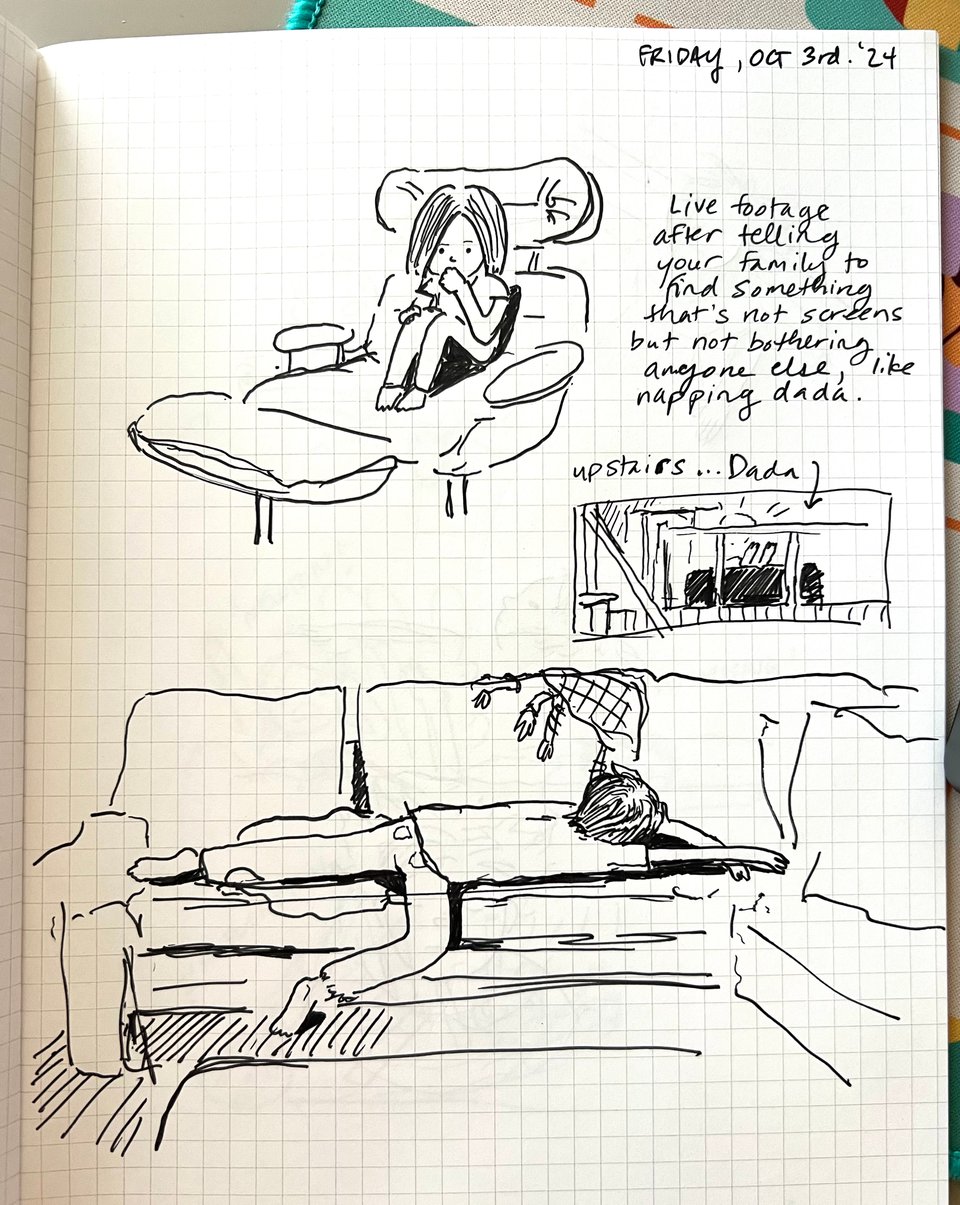 FRIDAY, OCT 3rd. '24
Live footage
after telling
your family to
find something
that's not screens
but not bothering
anyone else, like
napping dada.
upstairs... Dada